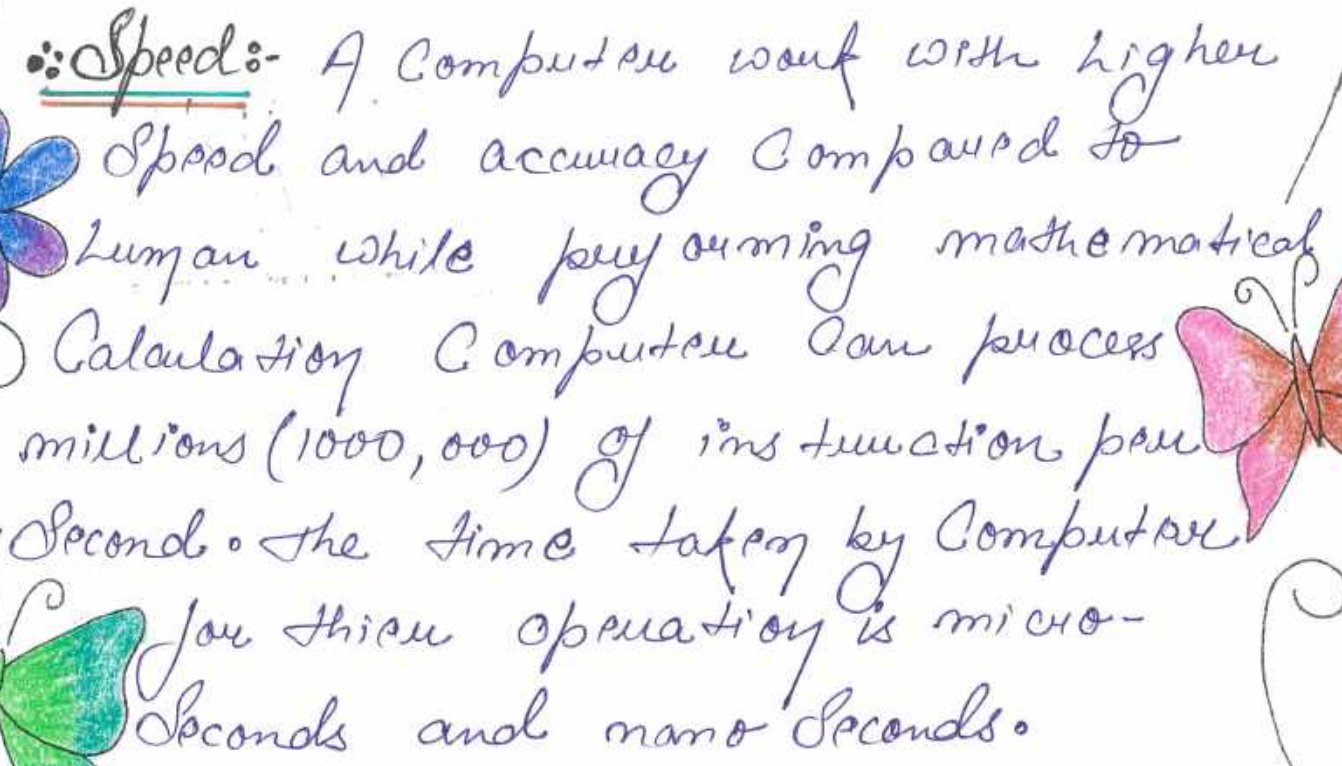 Speed:- A Computer work with higher
Speed and accuracy Compared to
human while performing mathematical
Calculation Computer Can process
millions (1000,000) of instruction per
Second. the time taken by Computer
for thier operation is micro-
Seconds and nano Seconds.